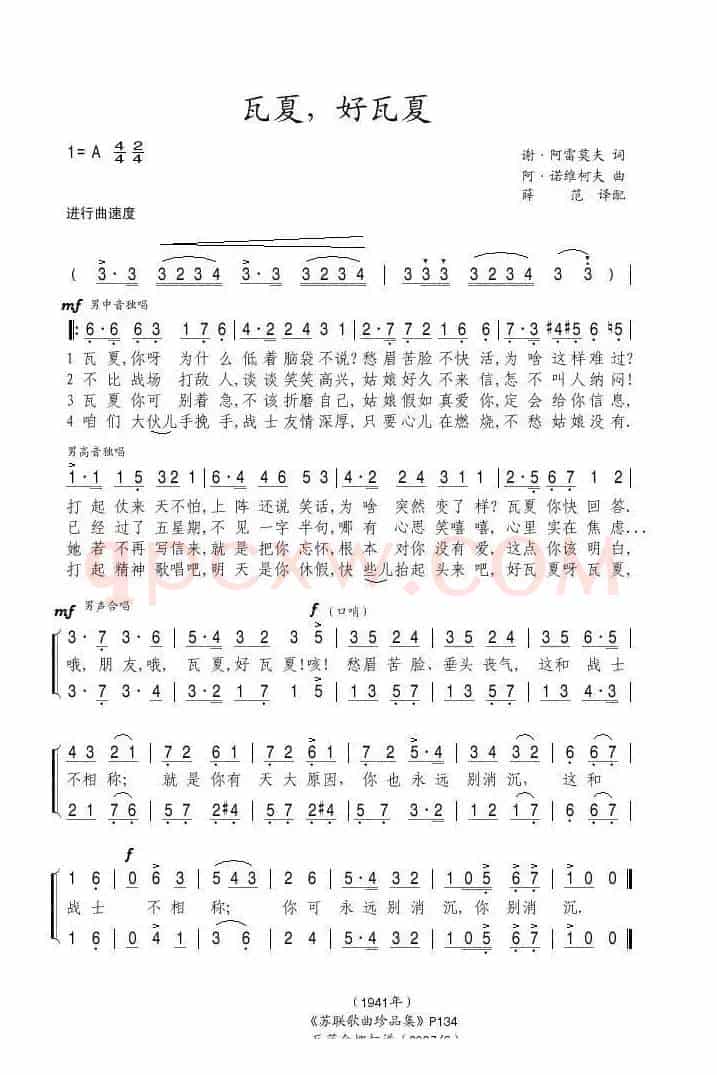 瓦夏，好瓦夏
1=A 4/4 2/4
谢·阿雷莫夫 词
阿·诺维柯夫 曲
薛 范 译配
进行曲速度
( 3·3 3234 3·3 3234 | 3 333 3234 3 3 ) |
mf 男中音独唱
‖: 6·6 63 176 | 4·2 2421 3 | 2·77 72 166 | 7·3 #4#5 6 ♮5 |
1 瓦夏,你呀 为什么 低着脑袋不说?愁眉苦脸不快活,为啥这样难过?
2 不比战场 打敌人,谈谈笑笑高兴,姑娘好久不来信,怎不叫人纳闷!
3 瓦夏你可 别着急,不该折磨自己,姑娘假如真爱你,定会给你信息,
4 咱们大伙儿手挽手,战士友情深厚,只要心儿在燃烧,不愁姑娘没有.
男高音独唱
1·1 15 321 | 6·4 46 5 3 | 4·2 24 321 | 2·5 67 1 2 |
打起仗来 天不怕,上阵还说笑话,为啥 突然变了样?瓦夏你快回答.
已经过了 五星期,不见一字半句,哪有 心思笑嘻嘻,心里实在焦虑...
她若不再 写信来,就是把你忘怀,根本 对你没有爱,这点你该明白,
打起精神 歌唱吧,明天是你休假,快些儿抬起头来吧,好瓦夏呀瓦夏,
mf 男声合唱 f (口哨)
3·7 3·6 | 5·4 32 3 5 | 35 24 | 35 24 | 13 55 | 6·5
哦,朋友,哦, 瓦夏,好瓦夏!咳! 愁眉苦脸、垂头丧气,这和战士
3·7 3·4 | 3·2 17 1 5 | 13 57 | 13 57 | 1 13 | 4·3
43 21 | 72 61 | 72 61 | 72 5·4 | 34 32 | 67
不相称; 就是你有天大原因, 你也永远别消沉, 这和
21 76 | 57 2#4 | 57 2#4 | 57 3·2 | 12 17 | 67
f
1 6 | 0 6 3 | 543 | 2 6 | 5·4 32 | 105 67 | 100 ‖
战士 不相称; 你可永远别消沉,你别消沉.
1 6 | 0 4 1 | 3 6 | 2 6 | 5·4 32 | 105 67 | 100 ‖
(1941年)
《苏联歌曲珍品集》P134
qpcxw.com